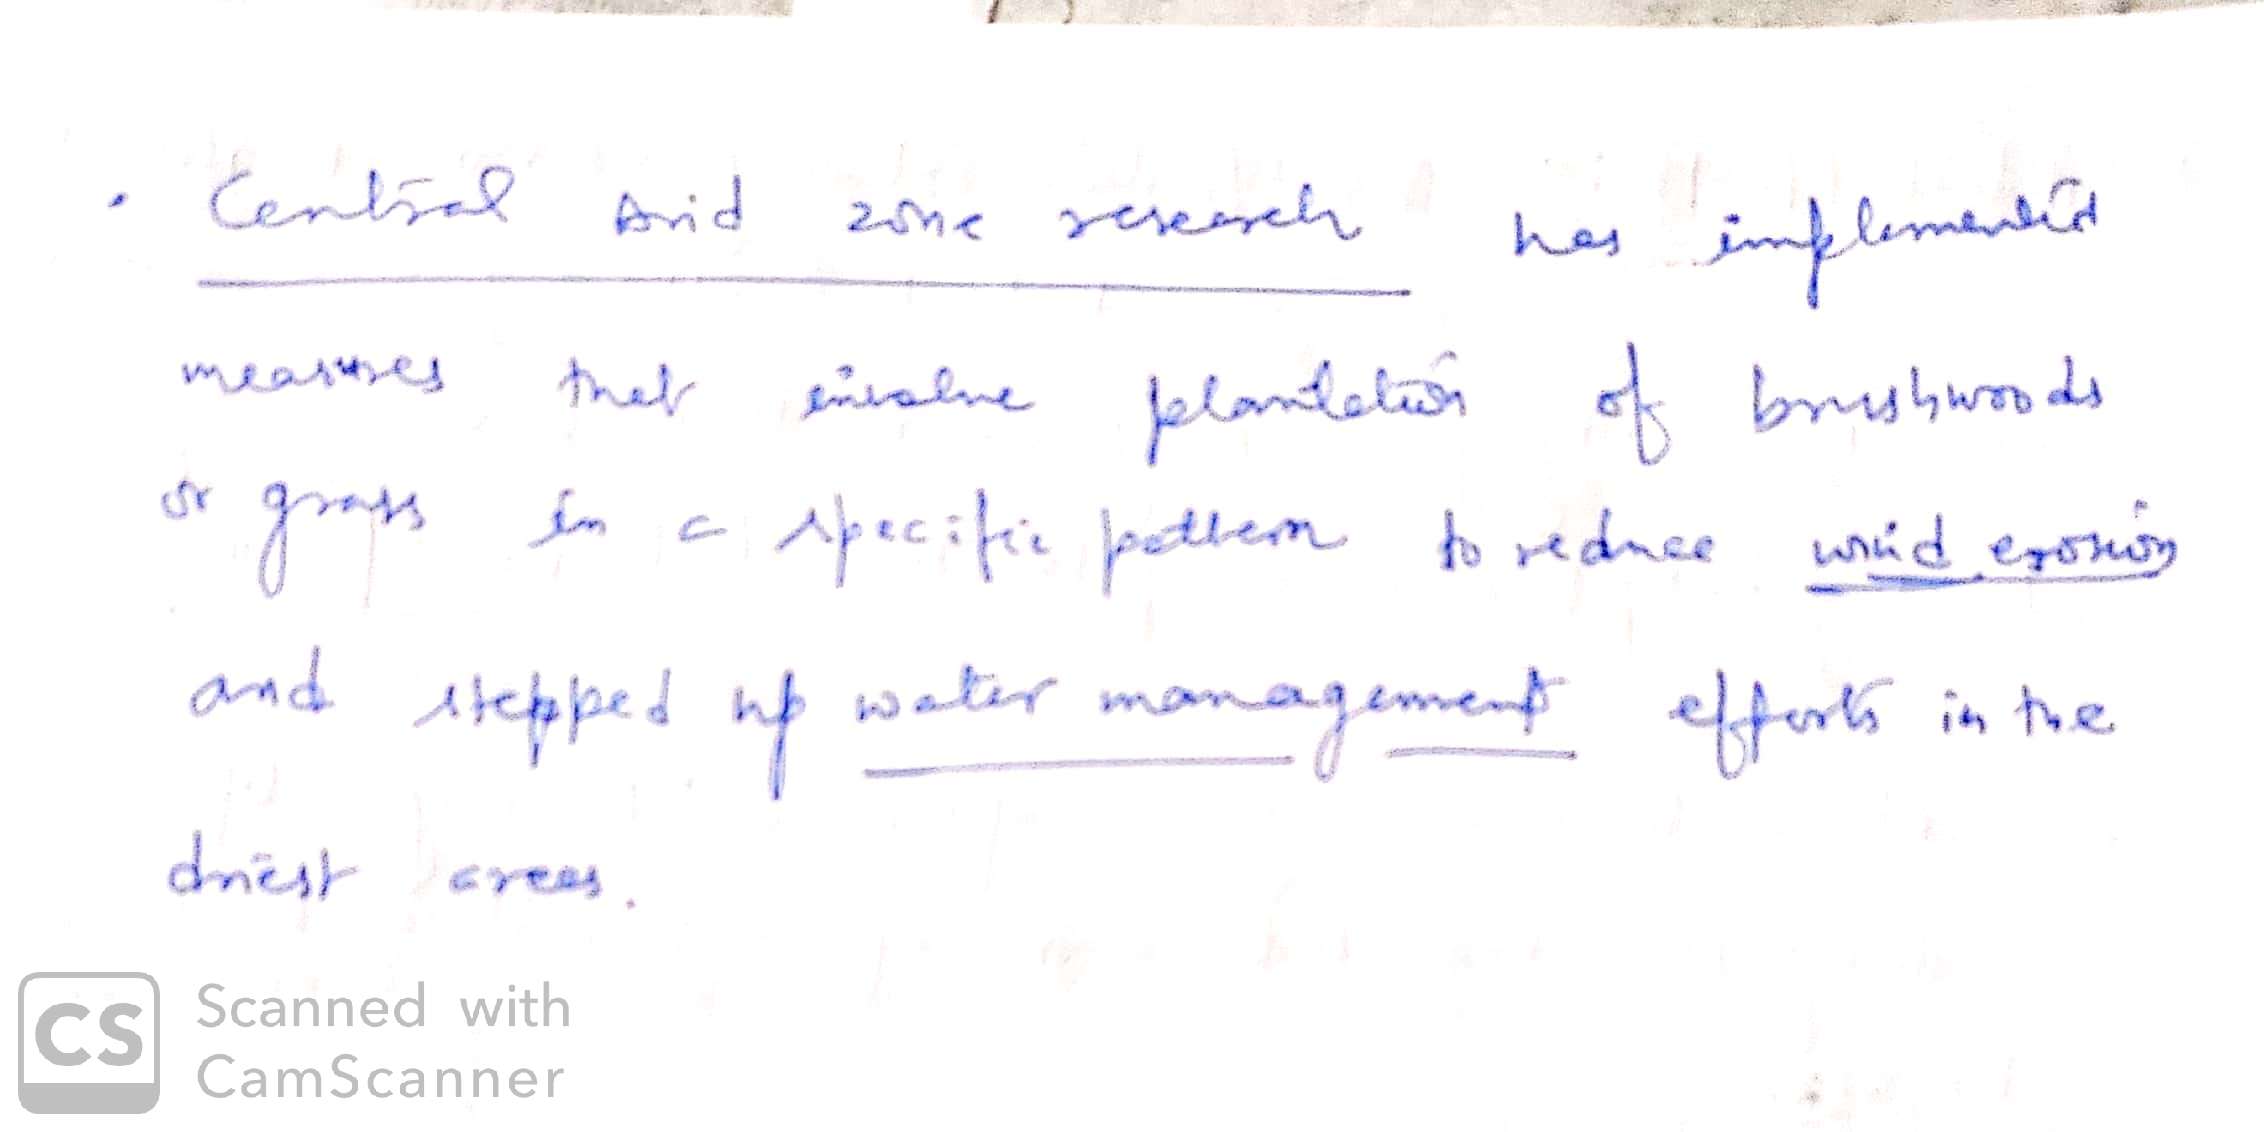 . Central Arid zone research has implemented
measures that involve plantation of brushwoods
or grass in a specific pattern to reduce wind erosion
and stepped up water management efforts in the
driest areas.
CS Scanned with
CamScanner